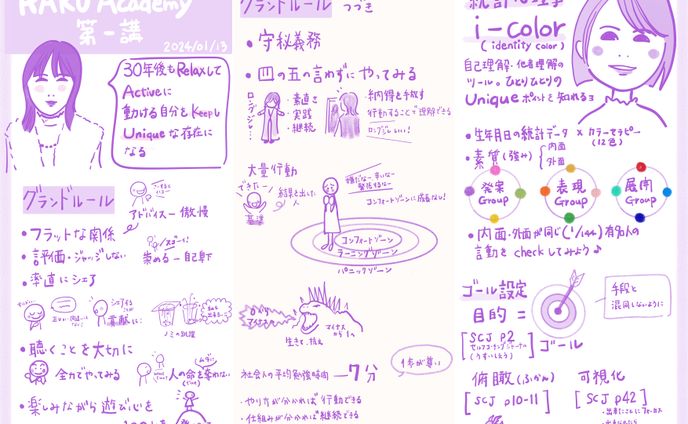 RAKU Academy
第一講
2024/01/13
30年後もRelaxして
Activeに
動ける自分をKeepし
Uniqueな存在に
なる
グランドルール
アドバイスー傲慢
・フラットな関係
・評価・ジャッジしない
崇めるー自己卑下
・率直にシェア
・聴くことを大切に
全力でやってみる
人の命を奪わない
・楽しみながら遊び心を
グランドルール つづき
・守秘義務
・四の五の言わずにやってみる
・素直さ
・実践
・継続
納得を手放す
行動することで理解できる
大量行動
できたー!
結果を出した人
基準
コンフォートゾーンに成長なし!
コンフォートゾーン
ラーニングゾーン
パニックゾーン
生きて、抗え
マイナス
から1へ
社会人の平均勉強時間ー7分
1歩が尊い
・やり方が分かれば行動できる
・仕組みが分かれば継続できる
統計心理学
i-color
(identity color)
自己理解・他者理解の
ツール。ひとりひとりの
Uniqueポイントを知れるヨ
・生年月日の統計データ×カラーセラピー
(12色)
・素質(強み)
内面
外面
発案
Group
表現
Group
展開
Group
・内面・外面が同じ(1/144)有名人の
言動をcheckしてみよう♪
ゴール設定
目的 =
手段と
混同しないように
[SCJ P2
ゴール
俯瞰(ふかん)
[SCJ p10-11]
可視化
[SCJ p42]